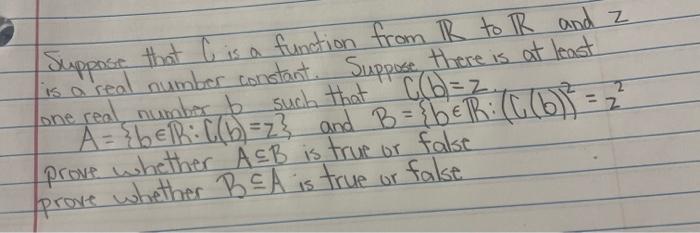 Suppose that C is a function from ℝ to ℝ and z
is a real number constant. Suppose there is at least
one real number b such that C(b)=z.
A={b∈ℝ: C(b)=z} and B={b∈ℝ: (C(b))²=z²
prove whether A⊆B is true or false
prove whether B⊆A is true or false